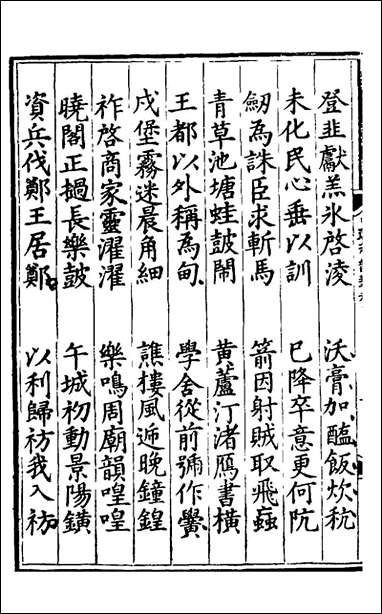 登韭獻羔氷啓淩　沃膏加醢飯炊秔
未化民心垂以訓　已降卒意更何阬
劒為誅臣求斬馬　箭因射賊取飛䖟
青草池塘蛙鼓閙　黄蘆汀渚鴈書橫
王都以外稱為甸　學舍從前彌作黌
戍堡霧迷晨角細　譙樓風逓晚鐘鍠
祚啓商家靈濯濯　樂鳴周廟韻喤喤
曉閣正撾長樂鼓　午城初動景陽鐄
資兵伐鄭王居鄭　以利歸祊我入祊